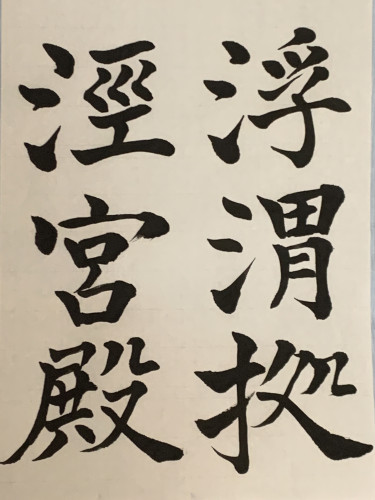 浮渭拠
涇宮殿